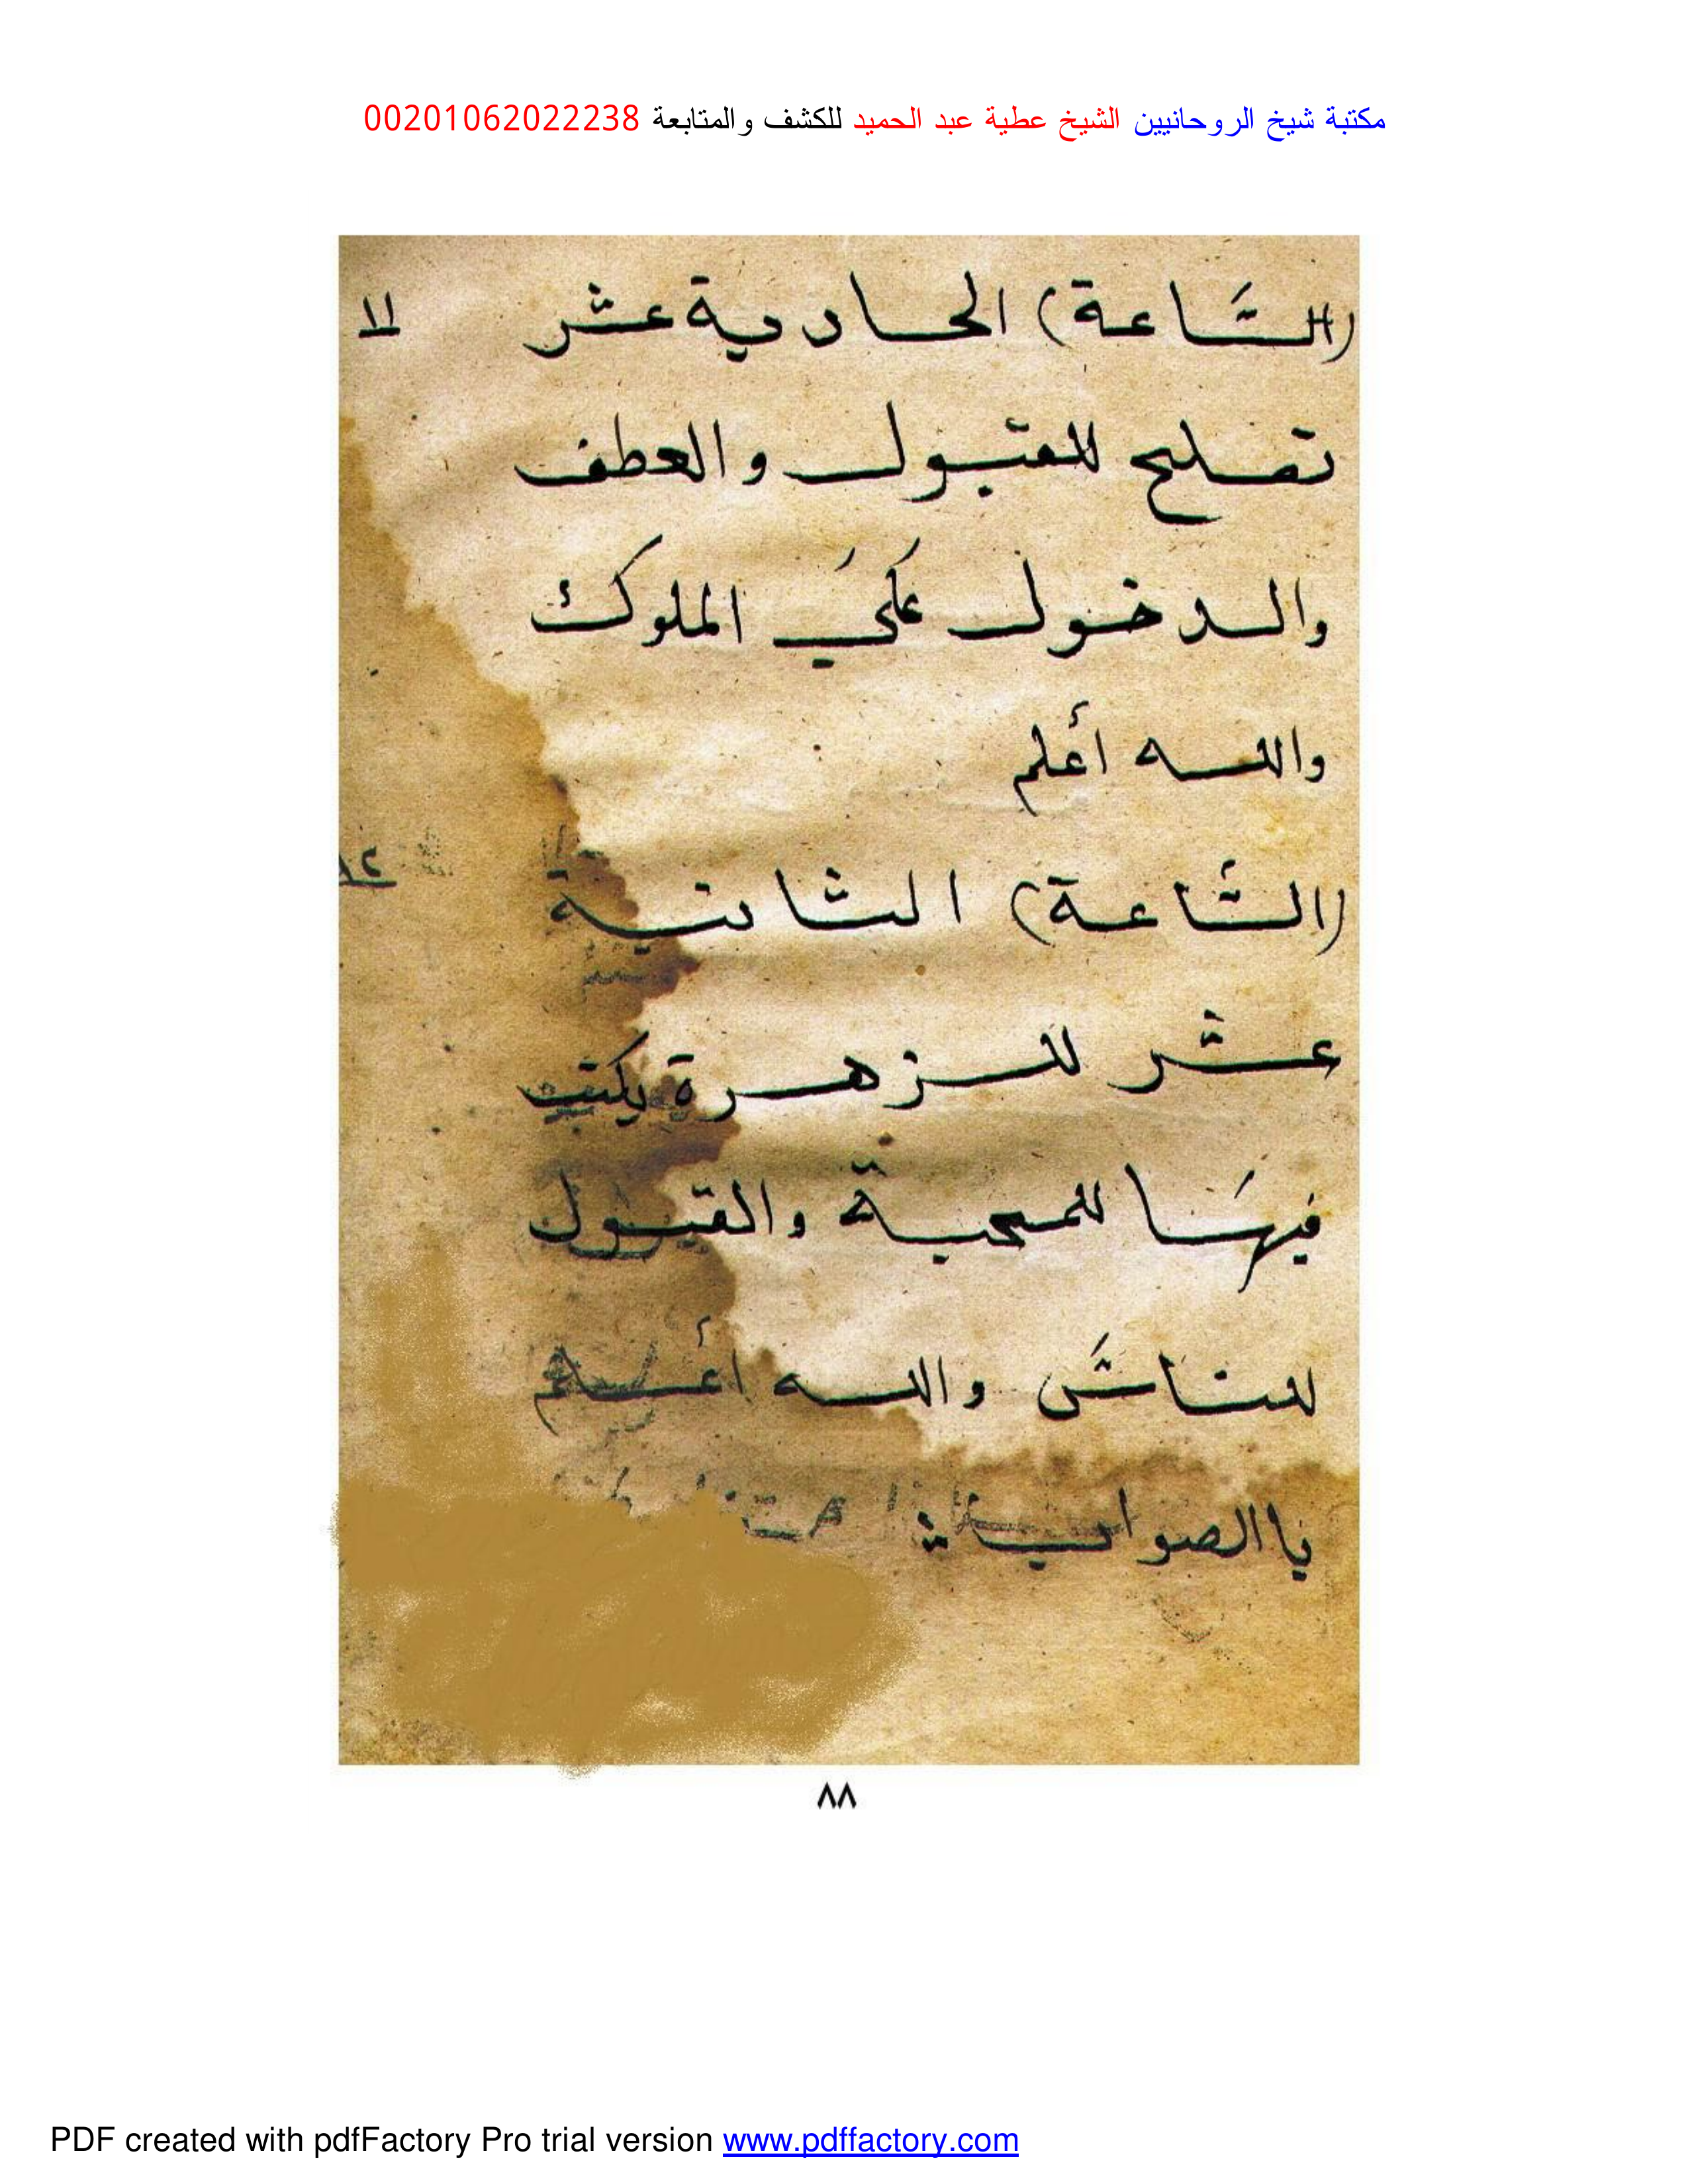 مكتبة شيخ الروحانيين الشيخ عطية عبد الحميد للكشف والمتابعة 00201062022238
(السَّاعة) الحادية عشر ١١
تصليح للقبول والعطف
والدخول عَلَي الملوك
والله أعلم
(السَّاعة) الثانية ١٢
عشر للزهرة يكتب
فيهَا للمحبة والقبول
للناسَ والله أعلم
باالصواب
٨٨
PDF created with pdfFactory Pro trial version www.pdffactory.com